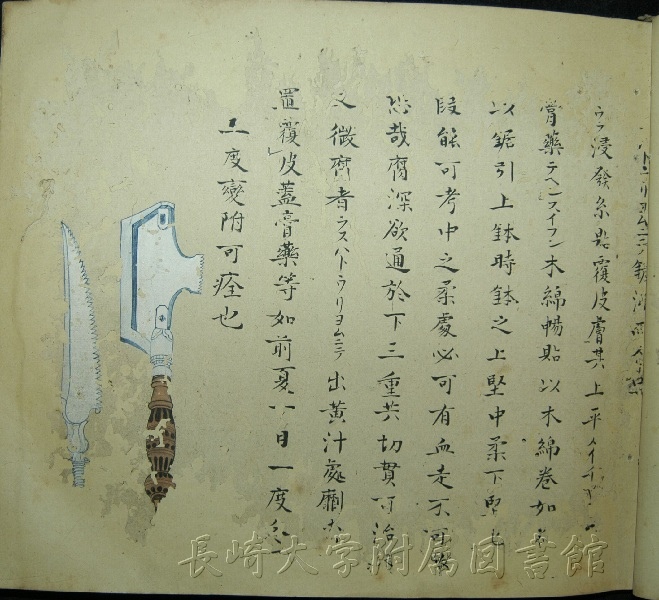 ラフ浸發糸 覆皮膚其上平
膏藥テヘンスイフン木綿暢貼以木綿卷如
以鋸引上鉢時鉢之上堅中柔下堅也
段能可考中之柔處必可有血走不可
哉腐深欲通於下三重共切貫可治
之微腐者ラスハトウリヨムニテ出黃汁處
置覆皮蓋膏藥等如前夏八日一度
二度變附可痊也
長崎大学附属図書館